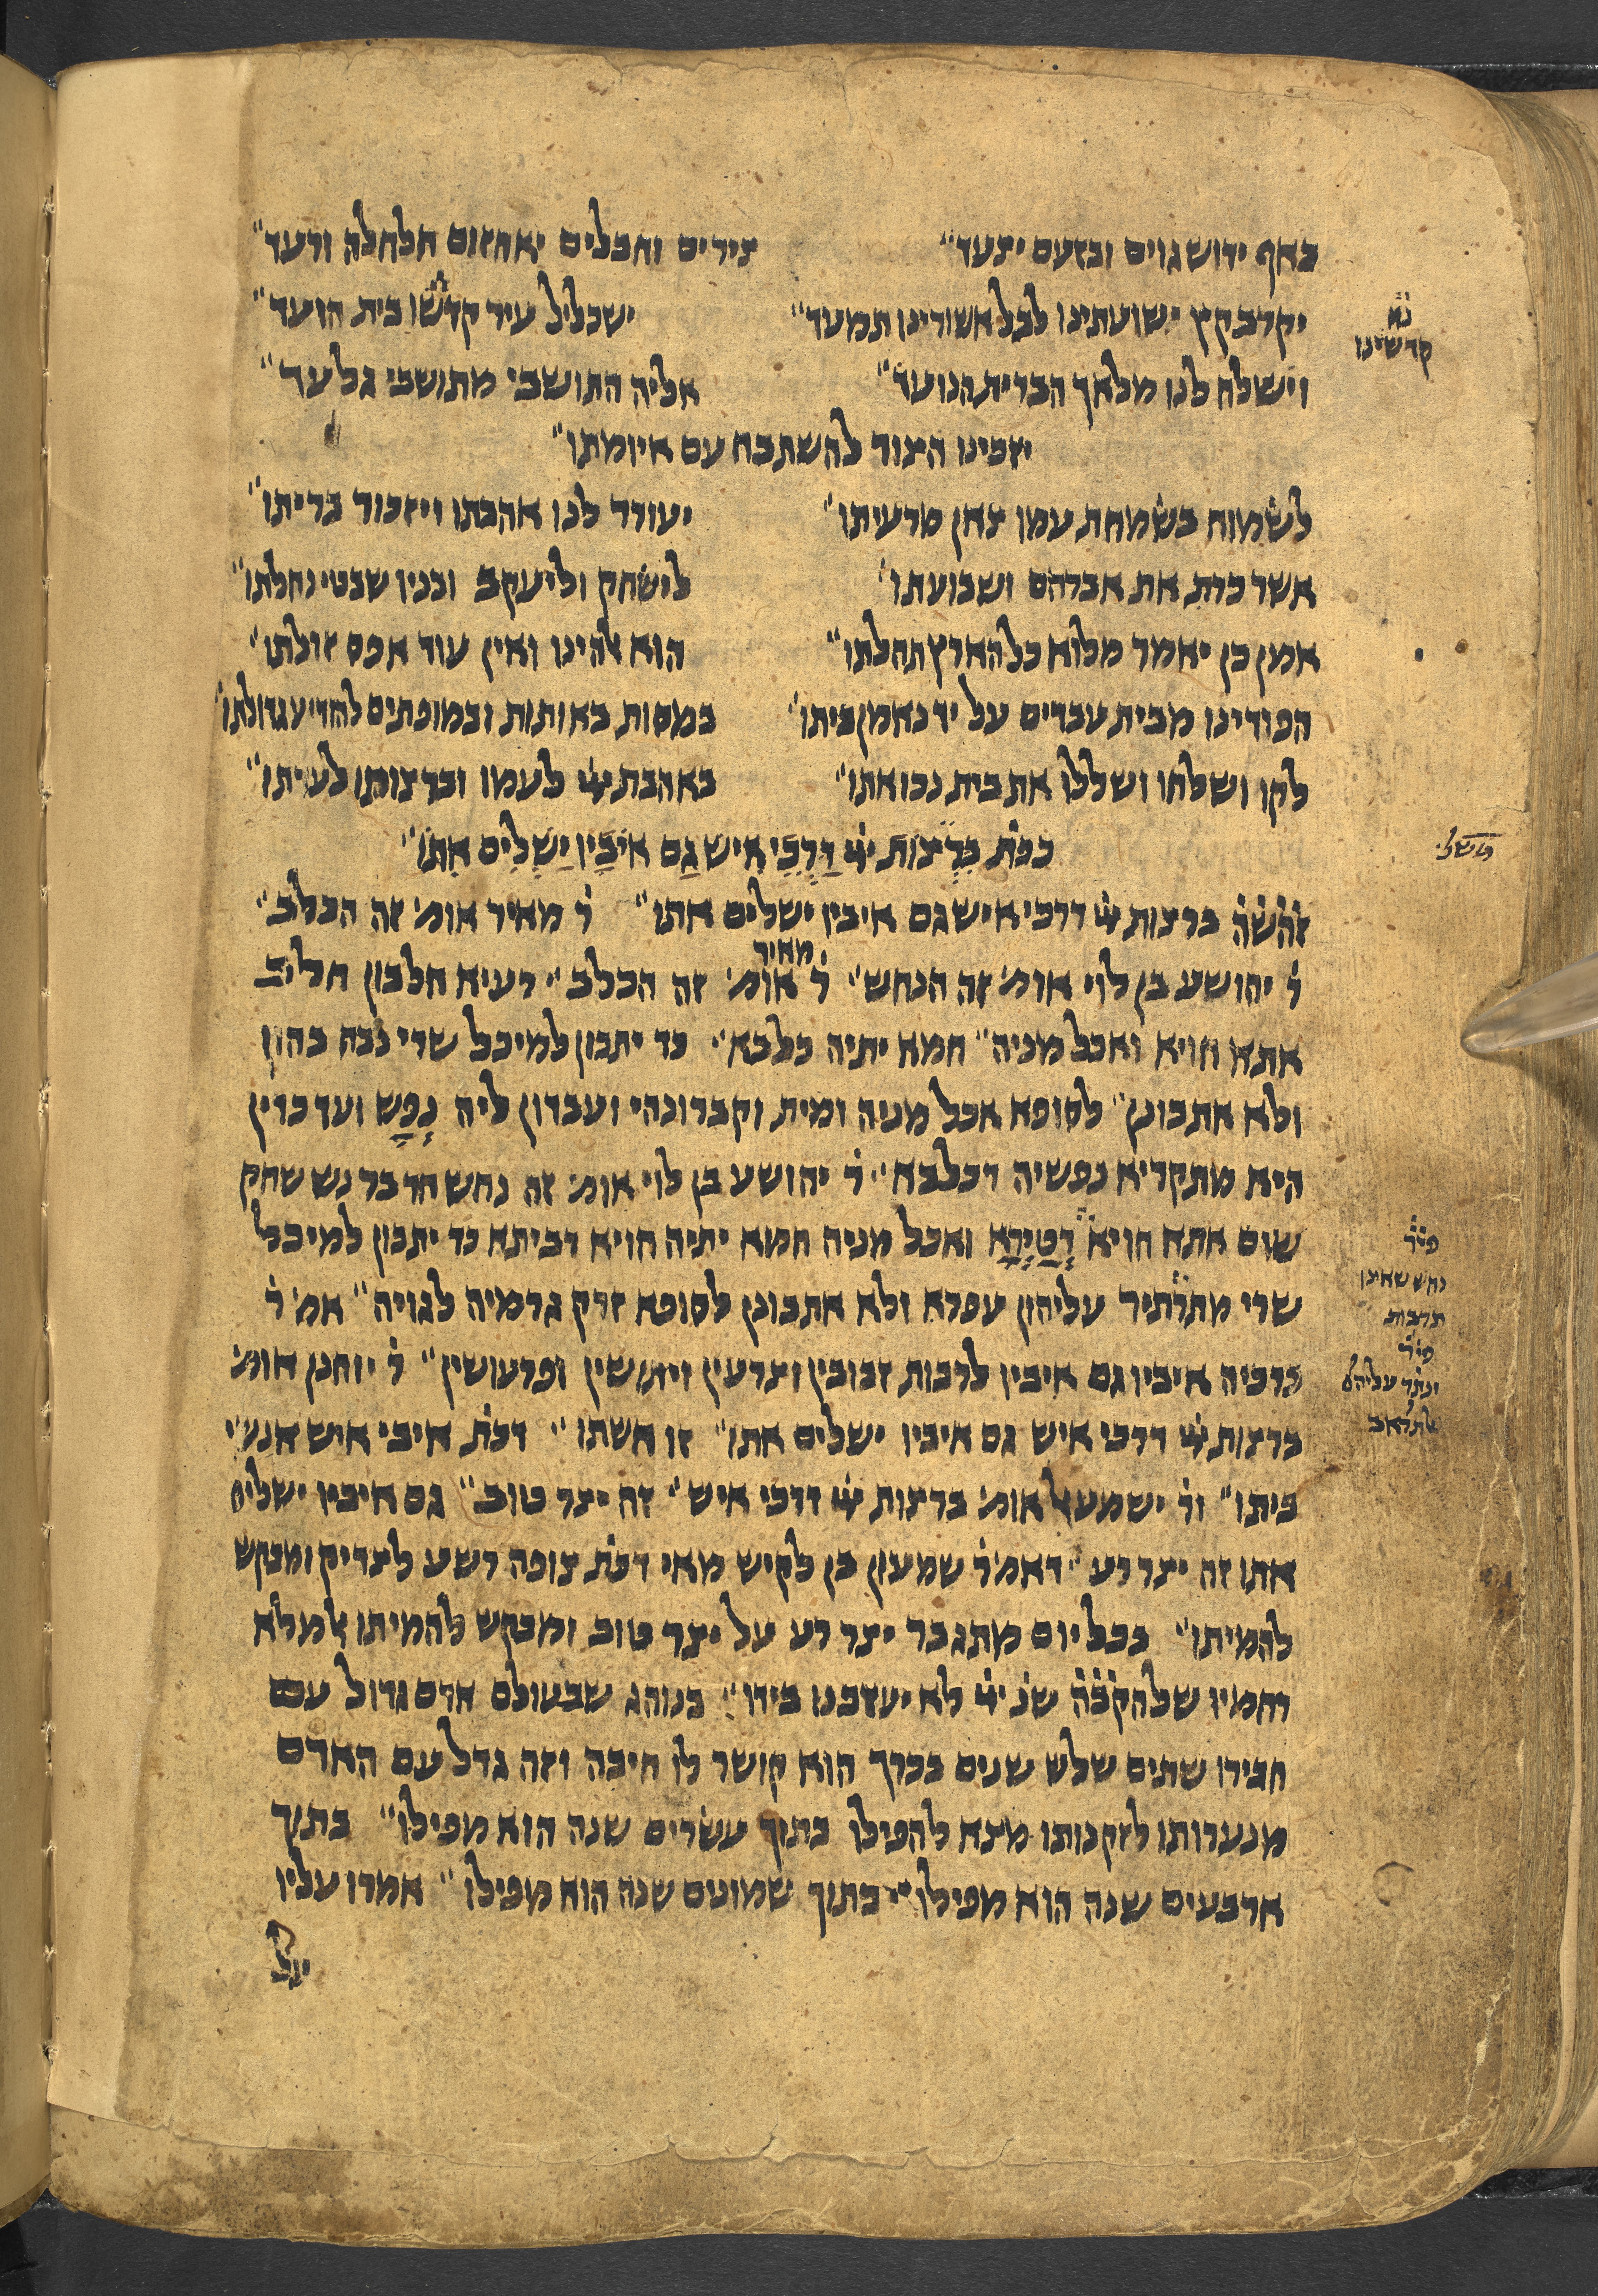 באף ידוש גוים ובזעם יצעד״ צירים וחבלים יאחזום חלחלה ורעד״
יקרב קץ ישועתינו לבל אשורינו תמעד״ ישכליל עיר קדשו בית הועד״
נא
קדשינו
וישלח לנו מלאך הברית הנועד״ אליה התושבי מתושבי גלעד״
יזכינו הצור להשתבח עם איומתו״
לשמוח בשמחת עמו צאן מרעיתו׳ יעורר לנו אהבתו ויזכור בריתו״
אשר כרת את אברהם ושבועתו׳ לישחק וליעקב ובניו שבטי נחלתו״
אמן כן יאמר מלוא כל הארץ תהלתו״ הוא אלהינו ואין עוד אפס זולתו׳
הפודינו מבית עבדים על יד נאמן ביתו׳ במסות באותות ובמופתים להודיע גדולתו׳
לקו ושלחו ושללו את בית נכואתו״ באהבת ייי לעמו וברצותו לעיתו״
ככת׳ ברצות ייי דרכי איש גם איביו ישלים אתו׳
משלי
זה׳ש׳ה׳ ברצות ייי דרכי איש גם איביו ישלים אתו״ ר׳ מאיר אומ׳ זה הכלב״
ר׳ יהושע בן לוי אומ׳ זה הנחש״ ר׳ מאיר אומ׳ זה הכלב״ רעיא חלבון חליב
אתא חויא ואכל מניה״ חמא יתיה כלבא״ כד יתבון למיכל שרי נבח בהון
ולא אתבונן״ לסופא אכל מניה ומית וקברונהי ועבדון ליה נפש ועד כדין
היא מתקריא נפשיה דכלבא״ ר׳ יהושע בן לוי אומ׳ זה נחש חד בר נש שחק
שום אתא חויא דטירא ואכל מניה חמא יתיה חויא דביתא כד יתבון למיכל
פי׳ר׳
נחש שאינו
תרבות
שרי מתרתיר עליהון עפרא ולא אתבונן לסופא זרק גרמיה לגויה״ אמ׳ ר׳
ברכיה איביו גם איביו לרבות זבובין וצרעין ויתושין ופרעושין״ ר׳ יוחנן אומ׳
פי׳ר׳
ונתר עליהם
ברצות ייי דרכי איש גם איביו ישלים אתו״ זו אשתו״ דכת׳ איבי איש אנשי
ביתו״ ור׳ ישמעאל אומ׳ ברצות ייי דרכי איש״ זה יצר טוב״ גם איביו ישלים
אתו זה יצר רע״ דאמ׳ ר׳ שמעון בן לקיש מאי דכת׳ צופה רשע לצדיק ומבקש
להמיתו״ בכל יום מתגבר יצר רע על יצר טוב ומבקש להמיתו אלמלא
רחמיו שלהק׳ב׳ה׳ שנ׳ ייי לא יעזבנו בידו״ בנוהג שבעולם אדם גדול עם
חבירו שתים שלש שנים בכרך הוא קושר לו חיבה וזה גדל עם האדם
מנערותו לזקנותו מצא להפילו בתוך עשרים שנה הוא מפילו״ בתוך
ארבעים שנה הוא מפילו״ בתוך שמונים שנה הוא מפילו״ אמרו עליו